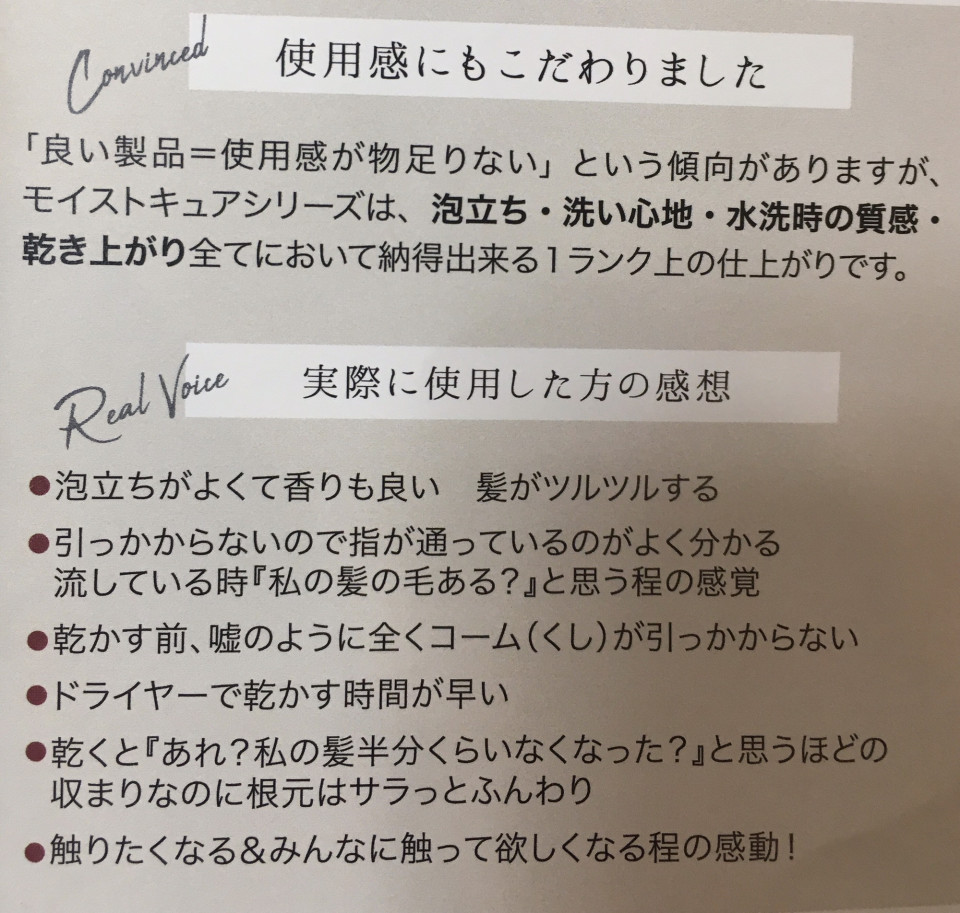 Convinced
使用感にもこだわりました
「良い製品＝使用感が物足りない」という傾向がありますが、
モイストキュアシリーズは、泡立ち・洗い心地・水洗時の質感・
乾き上がり全てにおいて納得出来る1ランク上の仕上がりです。
Real Voice
実際に使用した方の感想
●泡立ちがよくて香りも良い　髪がツルツルする
●引っかからないので指が通っているのがよく分かる
流している時『私の髪の毛ある？』と思う程の感覚
●乾かす前、嘘のように全くコーム（くし）が引っかからない
●ドライヤーで乾かす時間が早い
●乾くと『あれ？私の髪半分くらいなくなった？』と思うほどの
収まりなのに根元はサラっとふんわり
●触りたくなる＆みんなに触って欲しくなる程の感動！